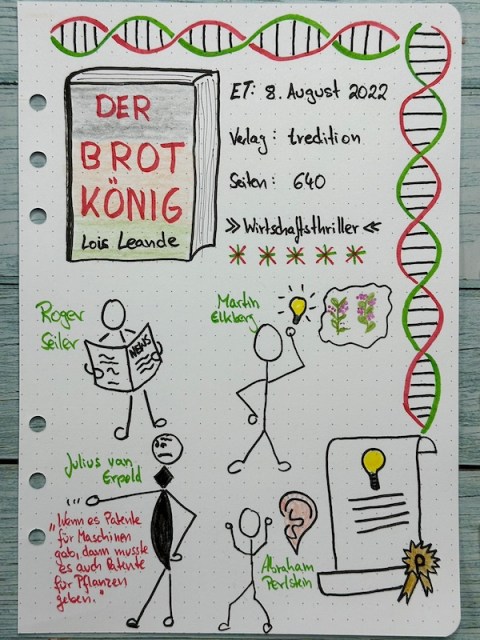 DER
BROT
KÖNIG
Lois Leande
ET: 8. August 2022
Verlag: tredition
Seiten: 640
»Wirtschaftsthriller«
Roger
Seiler
NEWS
Martin
Elkberg
Julius van
Erpeld
...
„Wenn es Patente
für Maschinen
gab, dann musste
es auch Patente
für Pflanzen
geben."
Abraham
Perlskin
P